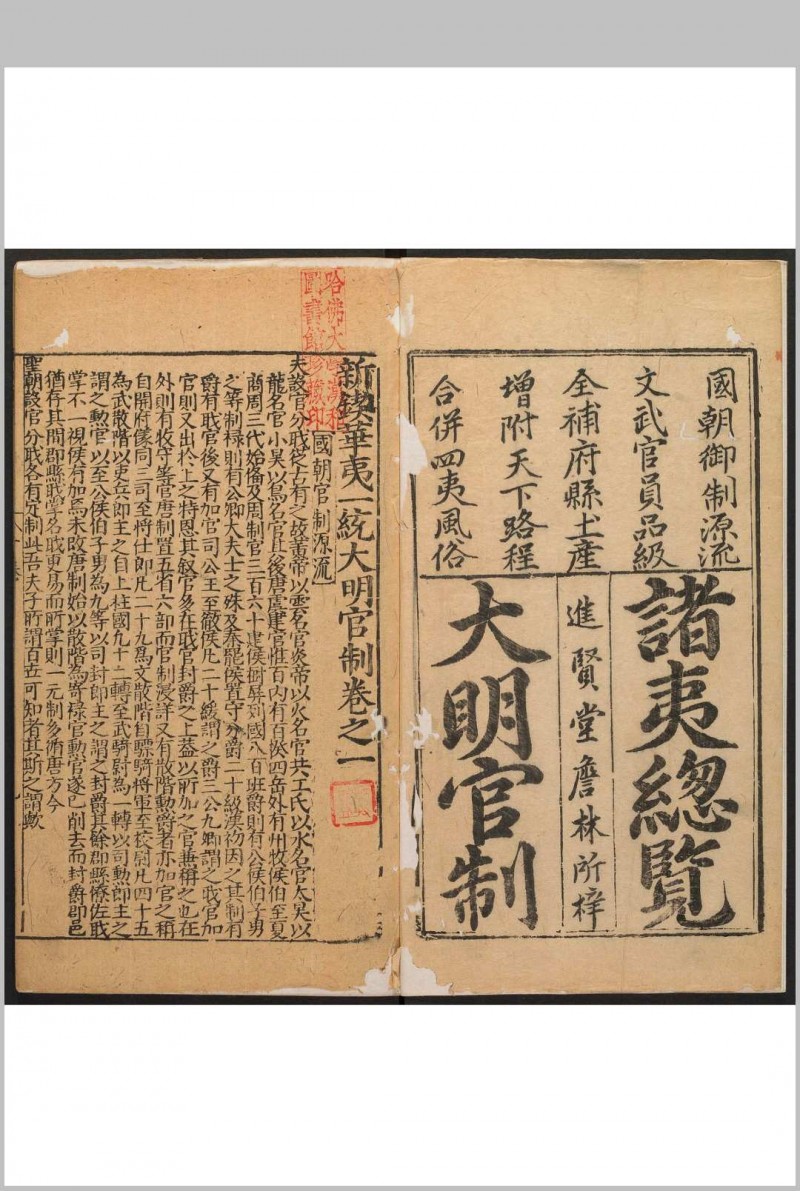 國朝御制源流
文武官員品級
全補府縣土產
增附天下路程
合併四夷風俗
諸夷總覽
進賢堂詹林所梓
大明官制
哈佛大學漢和
圖書館珍藏印
新鍥華夷一統大明官制卷之一
國朝官制源流
夫設官分職從古有之故黃帝以雲名官炎帝以火名官共工氏以水名官太昊以
龍名官小昊以鳥名官其後唐虞建官惟百內有百揆四岳外有州牧侯伯至夏
商周三代始俻及周制官三百六十建侯樹屏列國八百班爵則有公侯伯子男
之等制祿則有公卿大夫士之殊及秦罷侯置守分爵二十級漢初因之其制有
爵有職官後又有加官司公王至徹侯凡二十級謂之爵三公九卿謂之職官加
官則又出於上之特恩其叙官多在職官封爵之上葢以所加之官兼稱之也在
外則有牧守等官唐制置五省六部而官制浸詳又有散階勲爵者亦加官之稱
自開府儀同三司至將仕郎凡二十九為文散階自驃騎將軍至校尉凡四十五
為武散階以吏兵郎主之自上柱國九十二轉至武騎尉為一轉以司勲郎主之
謂之勲官以至公侯伯子男為九等以司封郎主之謂之封爵其餘郡縣僚佐職
掌不一視侯有加焉宋改唐制始以散階為寄祿官勲官遂已削去而封爵郡邑
猶存其間郡縣職掌名職更易而所掌則一元制多循唐方今
聖朝設官分職各有定制此吾夫子所謂百世可知者其斯之謂歟